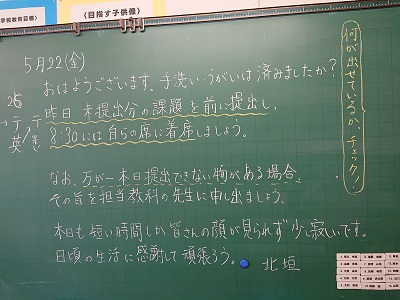 学校教育目標
〈目指す子供像〉
5月22(金)
おはようございます。手洗い・うがいは済みましたか?
昨日 未提出分の課題を前に提出し、
8:30には自らの席に着席しましょう。
なお、万が一本日提出できない物がある場合、
その旨を担当教科の先生に申し出ましょう。
本日も短い時間しか皆さんの顔が見られず少し寂しいです。
日頃の生活に感謝して頑張ろう。
北垣
何が出せているか、チェック!